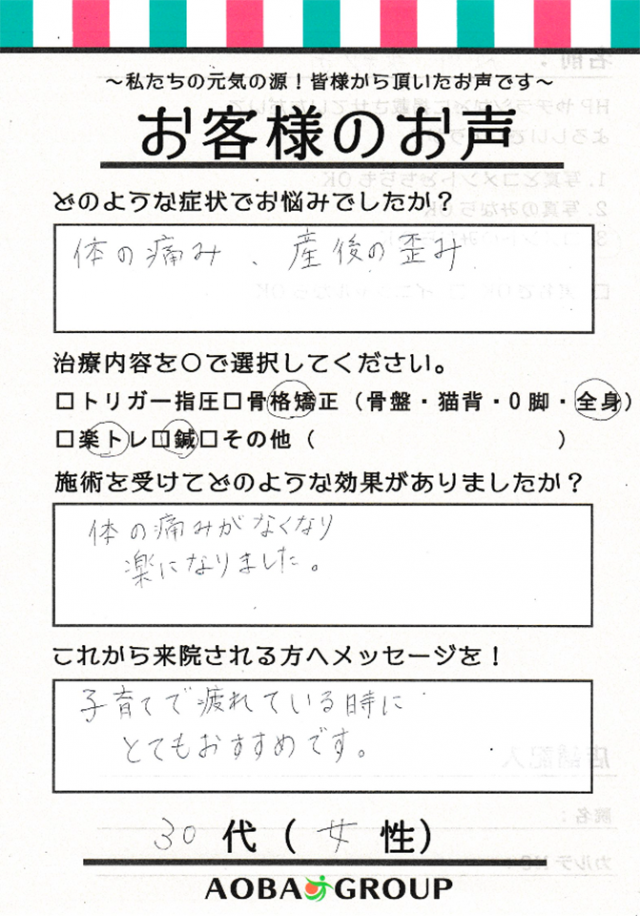 ～私たちの元気の源！皆様から頂いたお声です～
お客様のお声
どのような症状でお悩みでしたか？
体の痛み、産後の歪み
治療内容を○で選択してください。
□トリガー指圧□骨格矯正（骨盤・猫背・O脚・全身）
□楽トレ□鍼□その他（　　　　　　　　　　）
施術を受けてどのような効果がありましたか？
体の痛みがなくなり
楽になりました。
これから来院される方へメッセージを！
子育てで疲れている時に
とてもおすすめです。
30代（女性）
AOBA GROUP